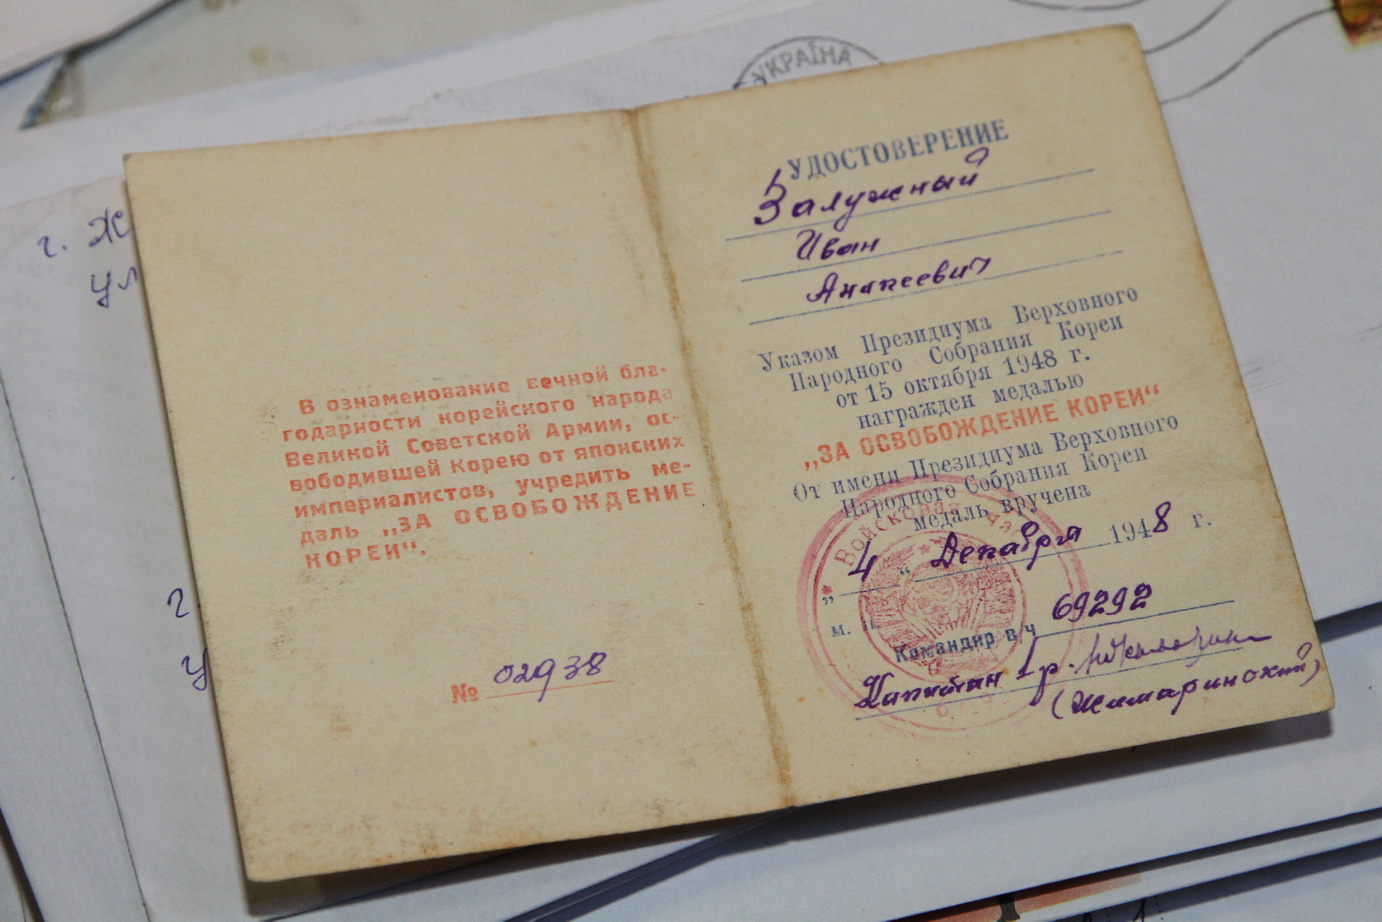 УКРАЇНА
г. Ж
ул
г
у
В ознаменование вечной бла-
годарности корейского народа
Великой Советской Армии, ос-
вободившей Корею от японских
империалистов, учредить ме-
даль „ЗА ОСВОБОЖДЕНИЕ
КОРЕИ“.
№ 02938
УДОСТОВЕРЕНИЕ
Залужный
Иван
Алексеевич
Указом Президиума Верховного
Народного Собрания Кореи
от 15 октября 1948 г.
награжден медалью
„ЗА ОСВОБОЖДЕНИЕ КОРЕИ“
От имени Президиума Верховного
Народного Собрания Кореи
медаль вручена
„ 4 “ Декабря 1948 г.
Войсковая
м. п.
Командир в/ч 69292
Капитан
(Жимаринский)